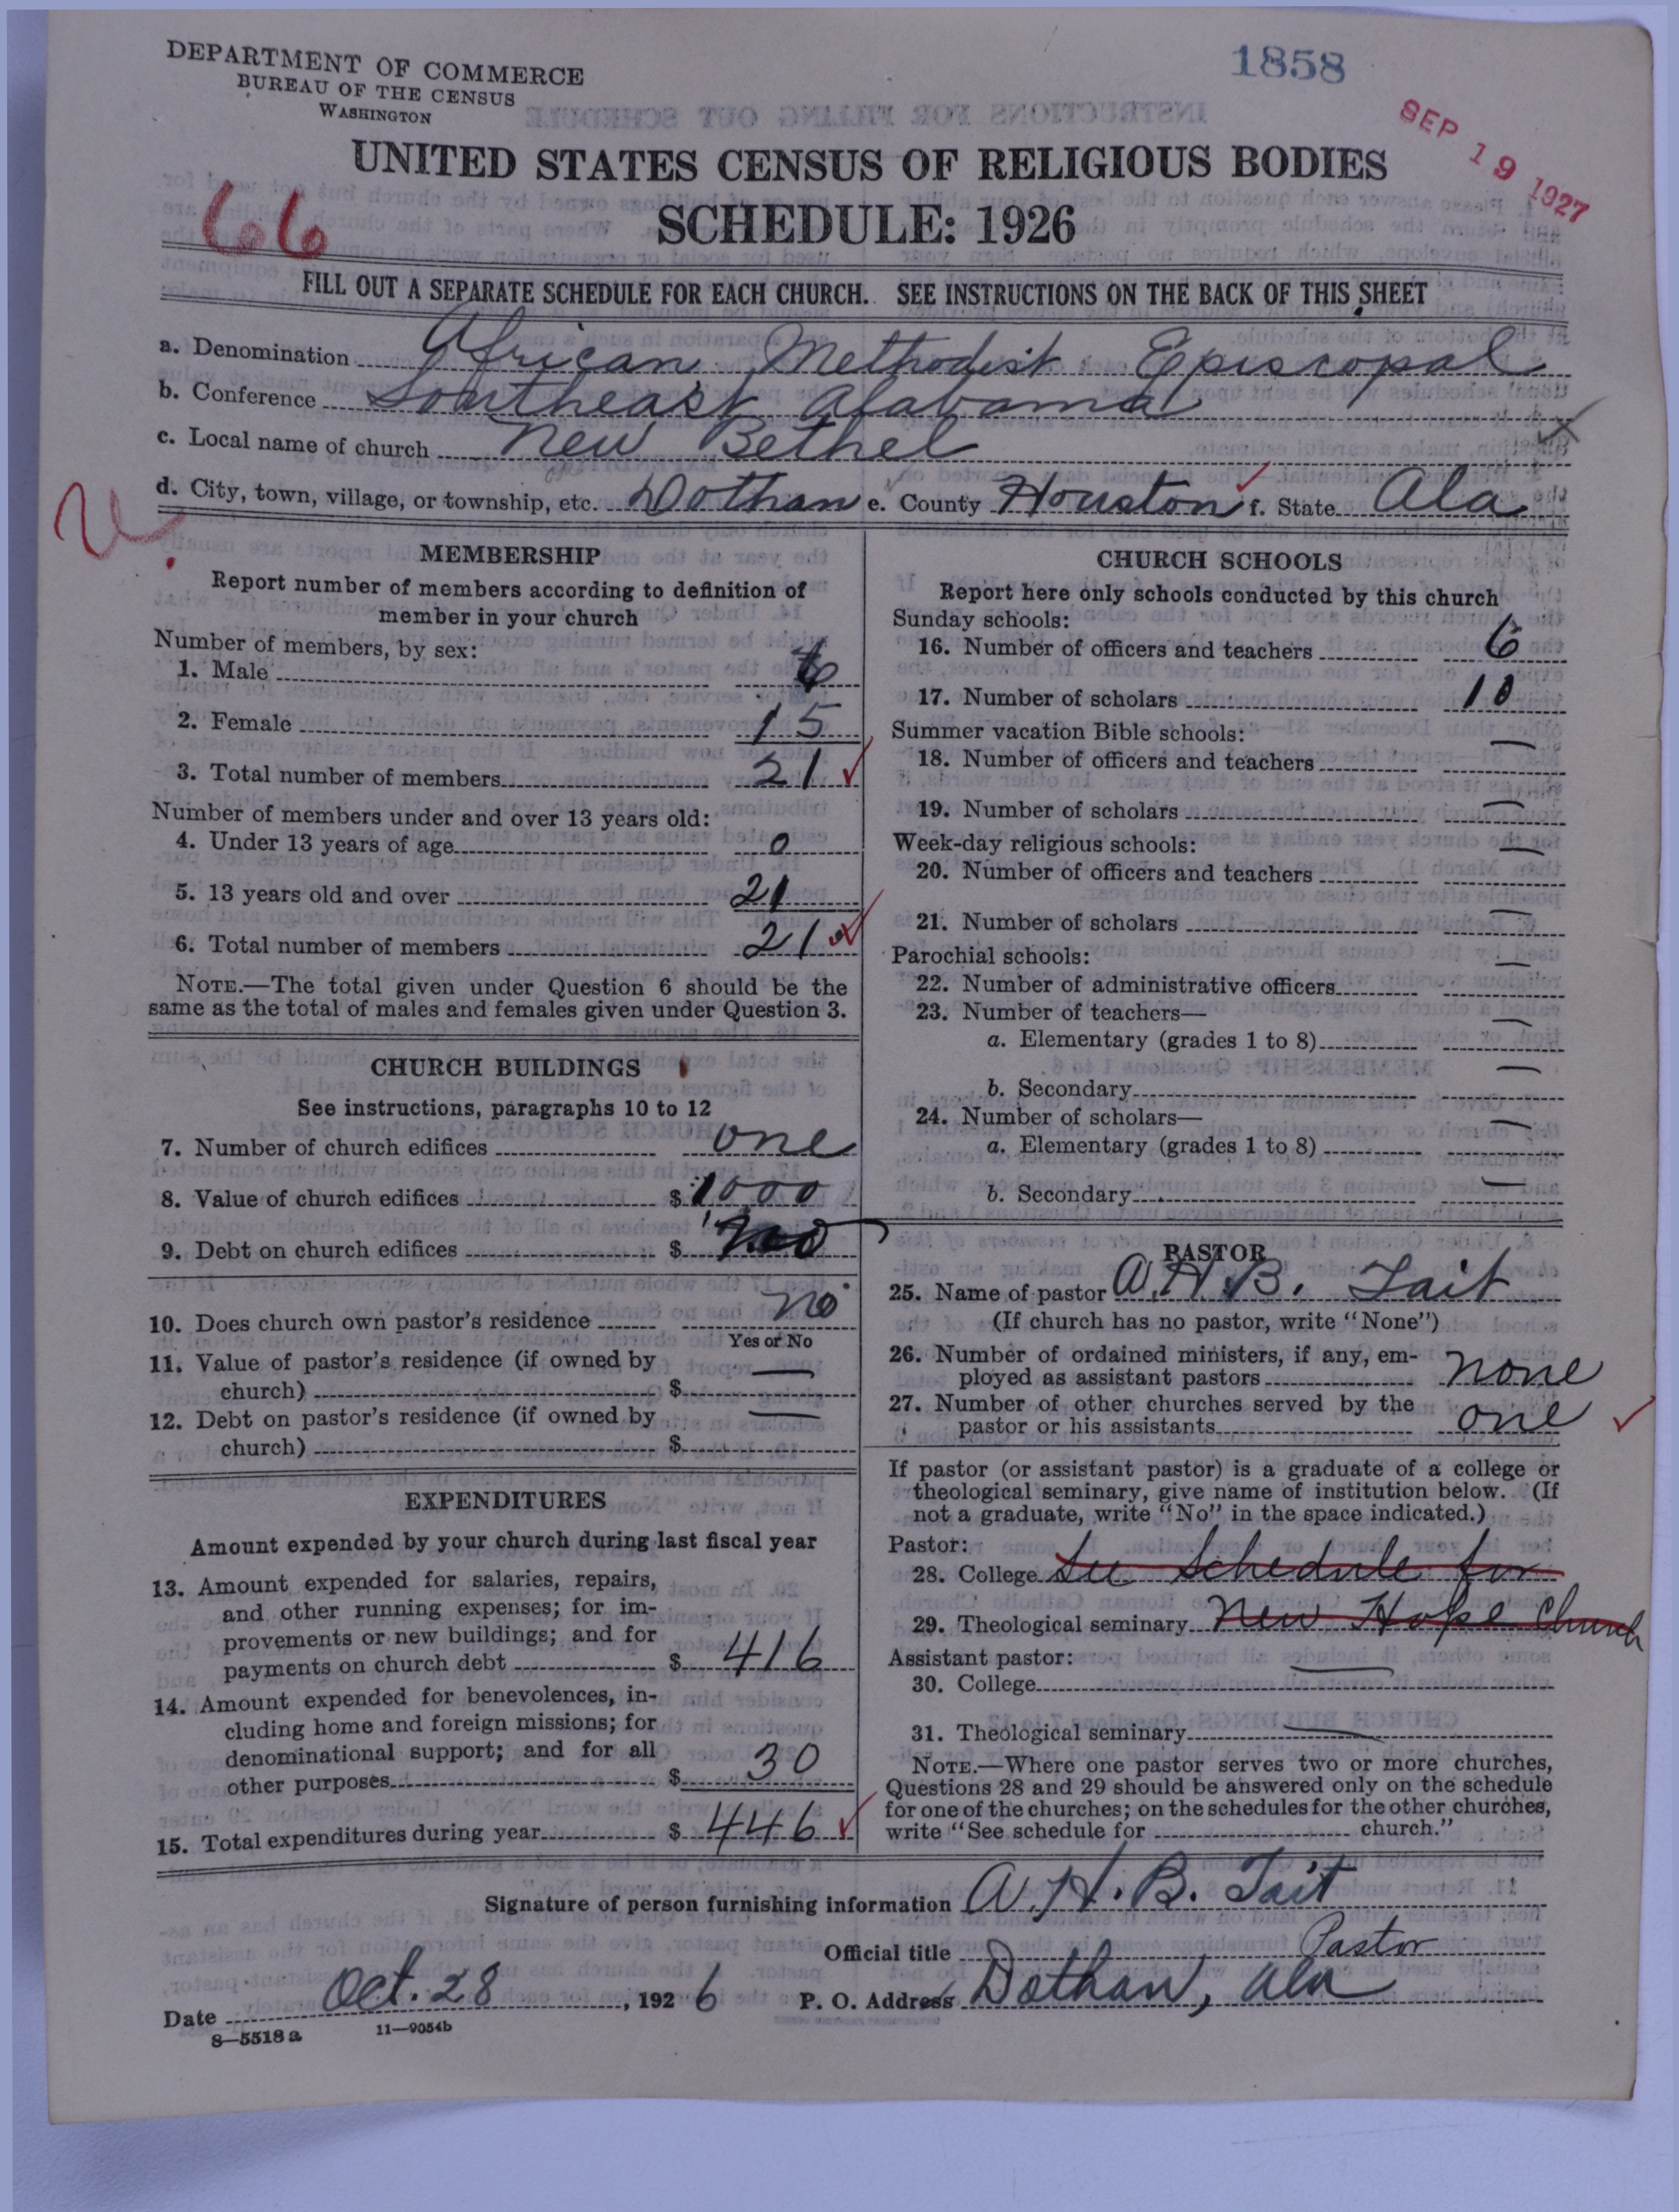 DEPARTMENT OF COMMERCE
BUREAU OF THE CENSUS
WASHINGTON
1858
SEP 19 1927
UNITED STATES CENSUS OF RELIGIOUS BODIES
66
SCHEDULE: 1926
FILL OUT A SEPARATE SCHEDULE FOR EACH CHURCH. SEE INSTRUCTIONS ON THE BACK OF THIS SHEET
a. Denomination African Methodist Episcopal
b. Conference Southeast Alabama
c. Local name of church New Bethel
d. City, town, village, or township, etc. Dothan e. County Houston f. State Ala
MEMBERSHIP
Report number of members according to definition of
member in your church
Number of members, by sex:
1. Male 6
2. Female 15
3. Total number of members 21
Number of members under and over 13 years old:
4. Under 13 years of age 0
5. 13 years old and over 21
6. Total number of members 21
NOTE.—The total given under Question 6 should be the
same as the total of males and females given under Question 3.
CHURCH BUILDINGS
See instructions, paragraphs 10 to 12
7. Number of church edifices one
8. Value of church edifices $ 1000
9. Debt on church edifices $
10. Does church own pastor's residence no
Yes or No
11. Value of pastor's residence (if owned by
church) $ —
12. Debt on pastor's residence (if owned by
church) $ —
EXPENDITURES
Amount expended by your church during last fiscal year
13. Amount expended for salaries, repairs,
and other running expenses; for im-
provements or new buildings; and for
payments on church debt $ 416
14. Amount expended for benevolences, in-
cluding home and foreign missions; for
denominational support; and for all
other purposes $ 30
15. Total expenditures during year $ 446
CHURCH SCHOOLS
Report here only schools conducted by this church
Sunday schools:
16. Number of officers and teachers 6
17. Number of scholars 10
Summer vacation Bible schools:
18. Number of officers and teachers —
19. Number of scholars —
Week-day religious schools:
20. Number of officers and teachers —
21. Number of scholars —
Parochial schools:
22. Number of administrative officers —
23. Number of teachers—
a. Elementary (grades 1 to 8) —
b. Secondary —
24. Number of scholars—
a. Elementary (grades 1 to 8) —
b. Secondary —
PASTOR
25. Name of pastor A. H. B. Tait
(If church has no pastor, write "None")
26. Number of ordained ministers, if any, em-
ployed as assistant pastors none
27. Number of other churches served by the
pastor or his assistants one
If pastor (or assistant pastor) is a graduate of a college or
theological seminary, give name of institution below. (If
not a graduate, write "No" in the space indicated.)
Pastor:
28. College See Schedule for
29. Theological seminary New Hope Church
Assistant pastor:
30. College —
31. Theological seminary —
NOTE.—Where one pastor serves two or more churches,
Questions 28 and 29 should be answered only on the schedule
for one of the churches; on the schedules for the other churches,
write "See schedule for church."
Signature of person furnishing information A. H. B. Tait
Official title Pastor
Date Oct. 28, 1926 P. O. Address Dothan, Ala
8—5518a 11—9054b